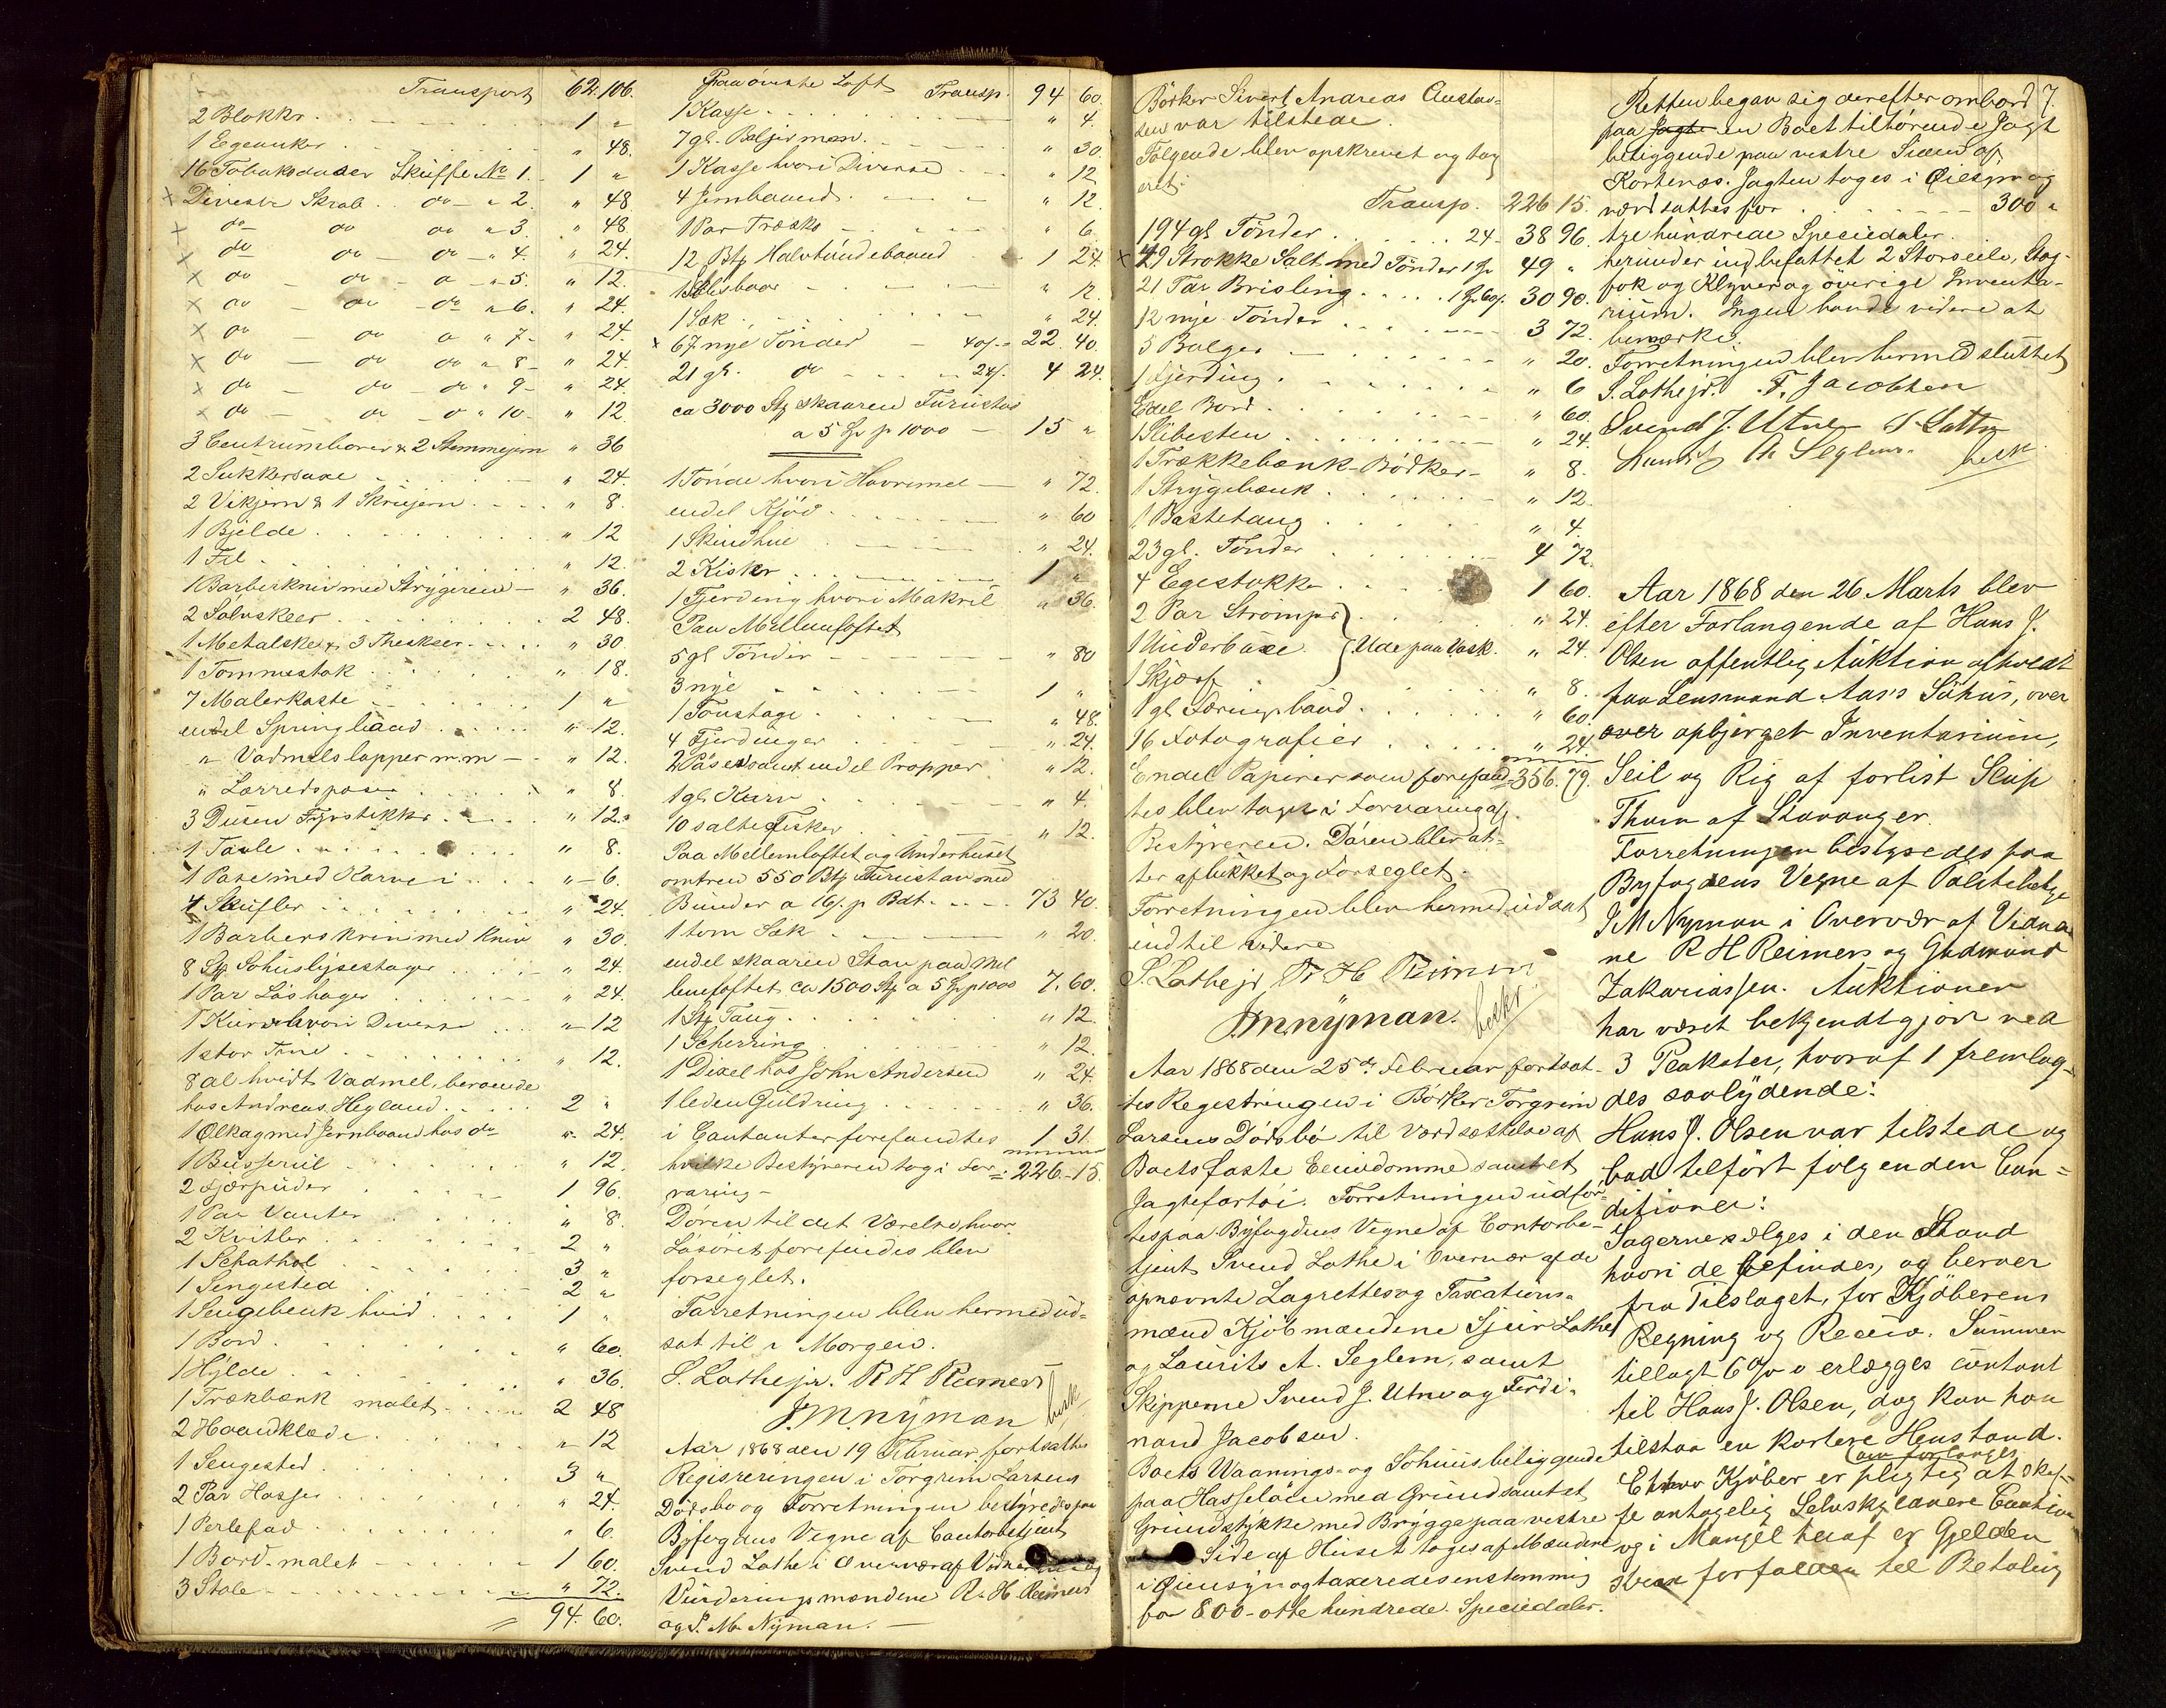 Transport 62. 106.
2 Blokke 1 "
1 Egeanker " 48.
16 Tobaksdaaser Skuffe No 1. 1 "
x Diverse Skrab do " 2. " 48
x do do do " 3. " 48.
x do do do " 4. " 24.
x do do do " 5. " 12.
x do do do " 6. " 24.
x do do do " 7 " 24.
x do do do " 8 " 24.
x do do do " 9 " 24.
x do do do " 10 " 12
3 Centrumborer & 2 Stemmejern " 36
2 Sukkersaxe " 24.
2 Vikjern & 1 Skrujern " 8.
1 Bjelde " 12
1 Fil " 12.
1 Barberkniv med Strygereim " 36.
2 Sølvskeer 2 48.
1 Metalskee & 3 Theskeer " 30
1 Tommestok " 18.
7 Malerkoste 1 "
endel Springbaand " 12.
" Vadmelslapper m.m " 12.
" Lærredsposer " 8.
3 Dusin Fyrstikker " 12.
1 Tavle " 8.
1 Pose med Karve i " 6.
4 Skufler " 24.
1 Barberskrin med Kniv " 30.
8 St Søhuslysestager " 24.
1 Par Laashager " 24.
1 Kurv hvori Diverse " 12
1 stor Tine " 12.
8 al hvidt Vadmel, beroende
hos Andreas Hegland 2 "
1 Ølkag med Jernbaand hos do " 24.
1 Bussersil " 12.
2 Fjærpuder 1 96.
1 Par Vanter " 8.
2 Kvitler 2 "
1 Schathol 3 "
1 Sengested 2 "
1 Sengebenk hvid 1 "
1 Bord " 60.
1 Hylde " 36.
1 Trækbænk malet 2 48
2 Haandklæde " 12
1 Sengested 3 "
2 Par Hosser " 24.
1 Perlefad " 6.
1 Bord malet 1 60.
3 Stole " 72.
94. 60.
Paa øverste Loft Transp. 94 60.
1 Kasse " 4.
7 gl. Baljer m.m. " 30.
1 Kasse hvori Diverse " 12
4 Jernbaand " 12.
1 Par Træsko " 6
12 Btg Halvtøndebaand 1 24.
" 12.
1 Sæk " 24.
x 67 nye Tønder 40/- 22. 40.
21 gl. do 24/. 4 24.
ca 3000 Stg skaaren Furustav
a 5 p 1000 15 "
1 Tønde hvori Havremel " 72.
endel Kjød " 60
1 Skindhue " 24.
2 Kister 1 "
1 Fjerding hvori Makrel " 36.
Paa Mellemloftet
5 gl Tønder " 80
3 nye " 1 "
1 Tønstage " 48.
4 Fjerdinger " 24.
2 Poser samt endel Propper " 12.
1 gl. Kurv " 4.
10 salte Fisker " 12.
Paa Mellemloftet og Underhuset
omtren 550 Btg Furustav med
Bunder a 16/. p Bdt. 73 40.
1 tom Sæk " 20.
endel skaaren Stav paa Mel
lemloftet ca 1500 Stg a 5 p 1000 7. 60.
1 St Taug " 12.
1 Scherring " 12.
1 Dixel hos John Andersen " 24.
1 liden Guldring " 36.
i Contanter forefandtes 1 31.
hvilke Bestyreren tog i For= 226. 15.
varing
Døren til det Værelse, hvor
Løsøret forefindes blev
forseglet.
Forretningen blev hermed ud=
sat til i Morgen.
S. Lothe jr. R H Reimers
J. M. Nyman besk.
Aar 1868 den 19 Februar fortsattes
Regisreringen i Torgrim Larsens
Dødsbo og Forretningen bestyredes paa
Byfogdens Vegne af Contorbetjent
Svend Lothe i Overvær af Vidnerne og
Vurderingsmændene R. H. Reimers
og J. M. Nyman.
Bødker Sivert Andreas Gustav=
sen var tilstede.
Følgende blev opskrevet og tax
eret:
Transp. 226 15.
194 gl Tønder 24 38 96.
x 49 Strokke Salt med Tønder 49 "
21 Tdr Brisling 30 90.
12 nye Tønder 3 72.
5 Balger " 20.
1 Fjerding " 6
Endel Bord " 60.
1 Slibesten " 24.
1 Trækkebænk-Bødker " 8.
1 Strygebænk " 12.
1 Bastetaug " 4.
23 gl. Tønder 4 72.
4 Egestokke 1 60.
2 Par Strømper " 24.
1 Underbuxe } Ude paa Vask. " 24.
1 Skjærf " 8.
1 gl " 60.
16 Fotografier " 24.
Endel Papirer som forefand= 356. 79.
tes blev tagen i Forvaring af
Bestyreren. Døren blev at=
ter aflukket og forseglet.
Forretningen blev hermed udsat
indtil videre
S. Lothe jr R H Reimers
J. M. Nyman. beskr.
Aar 1868 den 25de Februar fortsat=
tes Registringen i Bødker Torgrim
Larsens Dødsbo til Værdsættelse af
Boets faste Eiendomme samt et
Jagtefartøi. Forretningen udfør=
tes paa Byfogdens Vegne af Contorbe=
tjent Svend Lothe i Overvær af de
opnævnte Lagrettes og Taxations=
mænd Kjøbmændene Sjur Lothe
og Laurits A. Seglem, samt
Skipperne Svend J. Utne og Ferdi=
nand Jacobsen.
Boets Vaanings- og Søhuus beliggende
paa Hasseløen med Grund samt et
Grundstykke med Brygge paa vestre
Side af Huset toges af Mændene
i Øiensyn og taxeredes enstemmig
for 800 - otte hundrede Speciedaler.
Retten begav sig derefter ombord 7.
paa en Boet tilhørende Jagt
beliggende paa vestre Siden af
Kortenæs. Jagten toges i Øiesyn og
værdsattes for 300 "
tre hundrede Speciedaler.
herunder indbefattet 2 Storseile, Stag=
fok og Klyver og øvrige Inventa=
rium. Ingen havde videre at
bemærke.
Forretningen blev hermed sluttet
S. Lothe jr. F. Jacobsen
Svend J. Utne S Lothe
Laurits A Seglem. besk
Aar 1868 den 26 Marts blev
efter Forlangende af Hans J.
Olsen offentlig Auktion afholdt
paa Lensmand Aas's Søhus, over
over opbjerget Inventarium,
Seil og Rig af forlist Slup
Thum af Stavanger.
Forretningen bestyredes paa
Byfogdens Vegne af Politibetje
J M Nyman i Overvær af Vidne
ne R H Reimers og Gudmund
Zakariassen. Auktionen
har været bekjendtgjort ved
3 Plakater, hvoraf 1 fremlag=
des saalydende:
Hans J. Olsen var tilstede og
bad tilført følgenden Con=
ditioner:
Sagerne sælges i den Stand
hvori de befindes, og beroer
fra Tilslaget, for Kjøberens
Regning og Resico. Summen
tillagt 6 % erlægges contant
til Hans J. Olsen, dog kan han
tilstaa en kortere Henstand.
Enhver Kjøber er pligtig (om forlanges) at skaf=
fe antagelig Selvskyldnere Caution
og i Mangel heraf er Gjelden
strax forfalden til Betaling